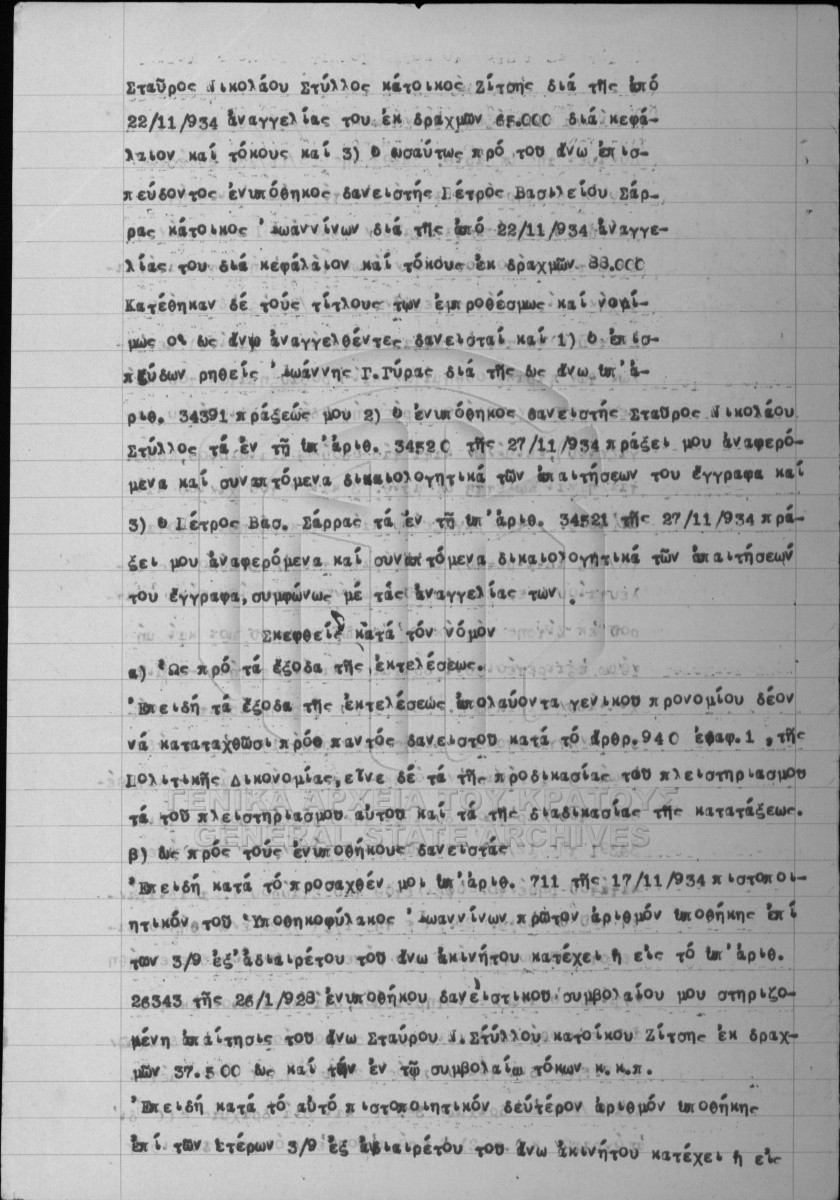 Σταῦρος Νικολάου Στύλλος κάτοικος Ζίτσης διά τῆς ἀπό
22/11/934 ἀναγγελίας του ἐκ δραχμῶν 65.000 διά κεφά-
λαιον καί τόκους καί 3) ὁ ωσαύτως πρό του ἄνω ἐπισ-
πεύδοντος ἐνυπόθηκος δανειστής Πέτρος Βασιλείου Σάρ-
ρας κάτοικος Ἰωαννίνων διά τῆς ἀπό 22/11/934 ἀναγγε-
λίας του διά κεφάλαιον καί τόκους ἐκ δραχμῶν 88.000
Κατέθηκαν δέ τούς τίτλους των ἐμπροθέσμως καί νομί-
μως οἱ ὡς ἄνω ἀναγγελθέντες δανεισταί καί 1) ὁ ἐπισ-
πεύδων ρηθείς Ἰωάννης Γ.Γύρας διά τῆς ὡς ἄνω ὑπ'ἀ-
ριθ. 34391 πράξεώς μου 2) ὁ ἐνυπόθηκος δανειστής Σταῦρος Νικολάου
Στύλλος τά ἐν τῇ ὑπ'ἀριθ. 34520 τῆς 27/11/934 πράξει μου ἀναφερό-
μενα καί συναπτόμενα δικαιολογητικά τῶν ἀπαιτήσεων του ἔγγραφα καί
3) ὁ Πέτρος Βασ. Σάρρας τά ἐν τῇ ὑπ'ἀριθ. 34521 τῆς 27/11/934 πρά-
ξει μου ἀναφερόμενα καί συναπτόμενα δικαιολογητικά τῶν ἀπαιτήσεών
του ἔγγραφα,συμφώνως μέ τάς ἀναγγελίας των.
Σκεφθείς κατά τόν νόμον
α) Ὡς πρό τά ἔξοδα τῆς ἐκτελέσεως.
Ἐπειδή τά ἔξοδα τῆς ἐκτελέσεώς ἀπολαύοντα γενικου προνομίου δέον
νά καταταχθῶσι πρόθ παντός δανειστοῦ κατά τό ἄρθρ.940 ἐφαφ.1 , τῆς
Πολιτικῆς Δικονομίας,εἶνε δέ τά τῆς προδικασίας τοῦ πλειστηριασμου
τά τοῦ πλειστηριασμου αὐτου καί τά τῆς διαδικασίας τῆς κατατάξεως.
ΓΕΝΙΚΑ ΑΡΧΕΙΑ ΤΟΥ ΚΡΑΤΟΥΣ
GENERAL STATE ARCHIVES
β) ὡς πρός τούς ἐνυποθήκους δανειστάς
Ἐπειδή κατά τό προσαχθέν μοι ὑπ'ἀριθ. 711 τῆς 17/11/934 πιστοποι-
ητικόν τοῦ Ὑποθηκοφύλακος Ἰωαννίνων πρῶτον ἀριθμόν ὑποθήκης ἐπί
των 3/9 ἐξ'ἀδιαιρέτου τοῦ ἄνω ἀκινήτου κατέχει ἡ εἰς τό ὑπ'ἀριθ.
26343 τῆς 26/1/928 ἐνυποθήκου δανειστικοῦ συμβολαίου μου στηριζο-
μένη ἀπαίτησις τοῦ ἄνω Σταύρου Ν.Στύλλου κατοίκου Ζίτσης ἐκ δραχ-
μῶν 37.500 ὡς καί τῶν ἐν τῷ συμβολαίῳ τόκων κ.κ.π.
Ἐπειδή κατά τό αὐτό πιστοποιητικόν δεύτερον ἀριθμόν ὑποθήκης
ἐπί τῶν ἑτέρων 3/9 ἐξ ἀδιαιρέτου τοῦ ἄνω ἀκινήτου κατέχει ἡ εἰς